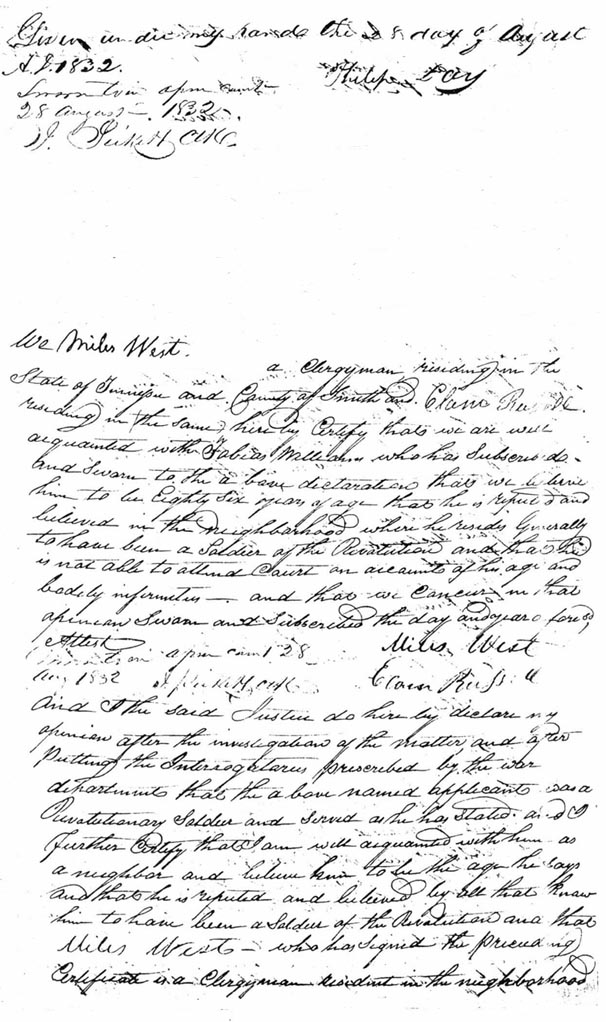 Given under my hand the 28 day of August
A.D. 1832.
Philip Day
Sworn to in open court
28 August 1832.
J. Pickett Clk
We Miles West.
a Clergyman residing in the
State of Tennessee and County of Smith and Elam Russell
residing in the same hereby Certify that we are well
acquainted with Tobias Williams who has Subscribed
and Sworn to the above declaration that we believe
him to be Eighty Six years of age that he is reputed and
believed in the neighborhood where he resides Generally
to have been a Soldier of the Revolution and that he
is not able to attend Court on account of his age and
bodily infirmities — and that we Concur in that
opinion Sworn and Subscribed the day and year aforesd,
Attest
Miles West
Sworn to in open court 28
Aug 1832 J. Pickett, Clk
Elam Russell
And I the said Justice do hereby declare my
opinion after the investigation of the matter and after
Putting the Interrogatories prescribed by the war
department that the above named applicant was a
Revolutionary Soldier and Served as he has Stated and I
further Certify that I am well acquainted with him as
a neighbor and believe him to be the age he Says
and that he is reputed and believed by all that know
him to have been a Soldier of the Revolution and that
Miles West — who has Signed the preceeding
Certificate is a Clergyman resident in the neighborhood